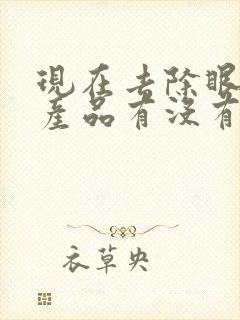 現在去除眼
產品有沒有
衣草央